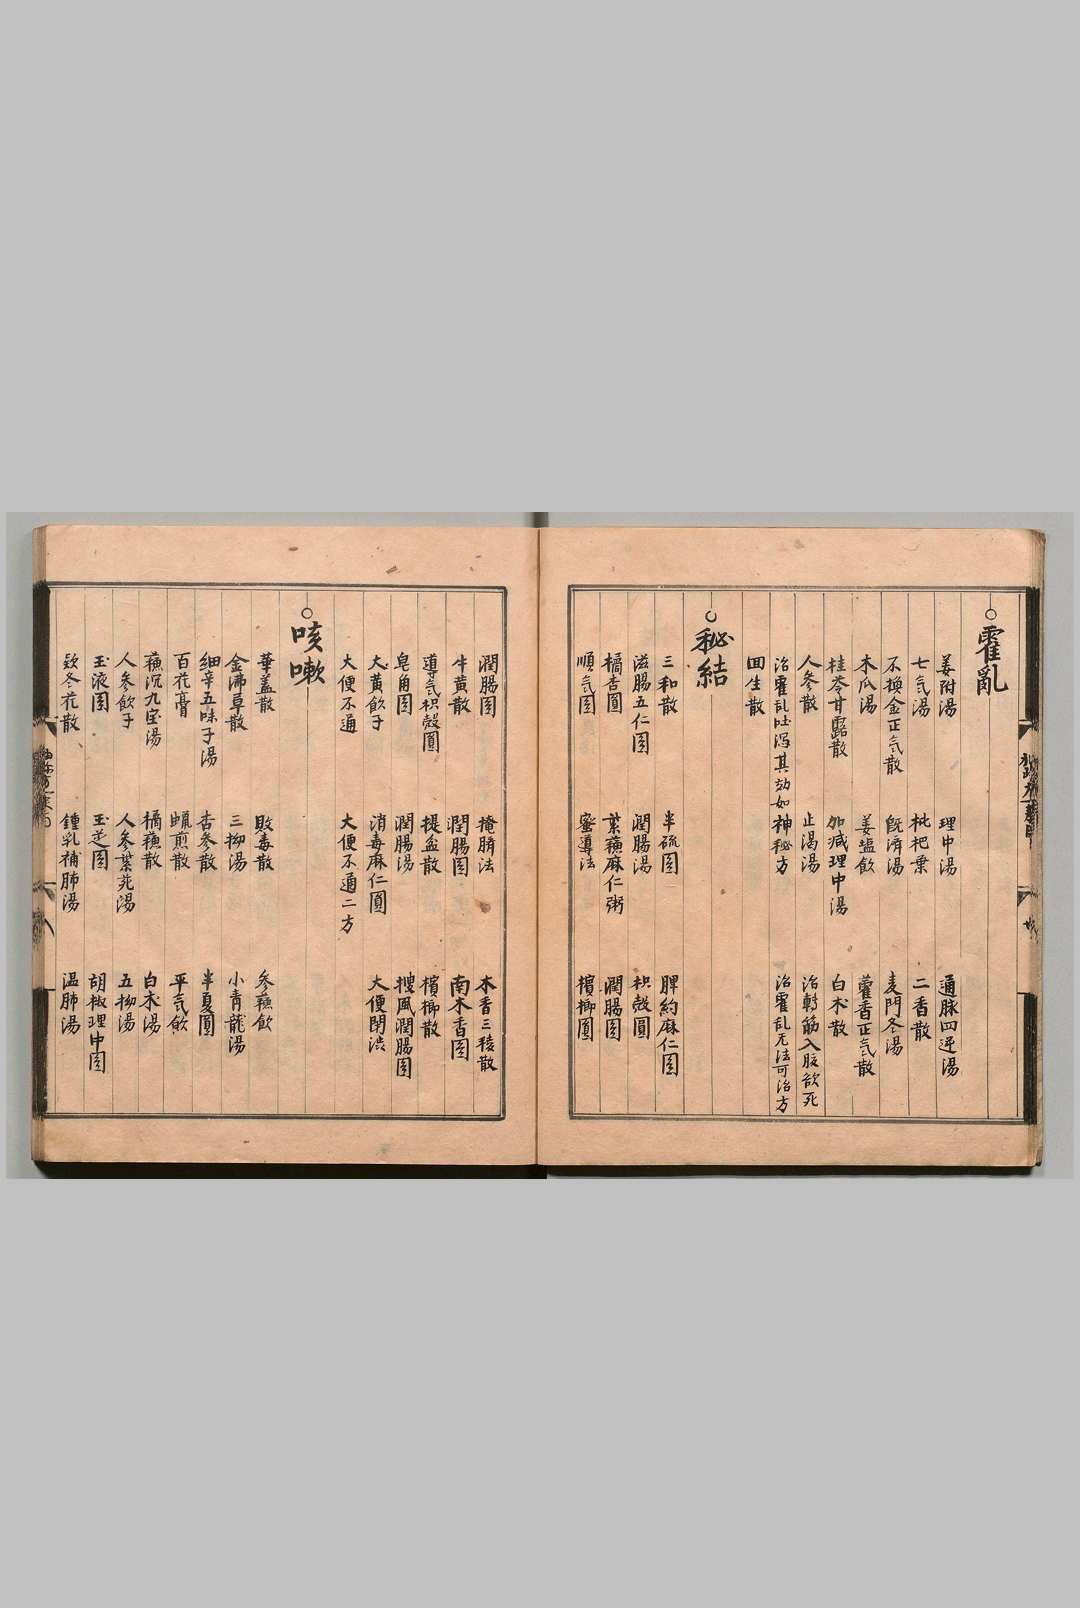 ○霍亂
姜附湯 理中湯 通脉四逆湯
七気湯 枇杷葉 二香散
不換金正気散 既濟湯 麦門冬湯
木瓜湯 姜塩飲 藿香正気散
桂苓甘露散 加减理中湯 白朮散
人参散 止渴湯 治轉筋入腹欲死
治霍乱吐瀉其効如神秘方 治霍乱无法可治方
回生散
○秘結
三和散 半硫圎 脾約麻仁圎
滋腸五仁圎 潤腸湯 枳殼圓
橘杏圓 紫蘓麻仁粥 潤腸圎
順気圎 蜜導法 檳榔圓
潤腸圎 掩臍法 木香三稜散
牛黄散 潤腸圎 南木香圎
導気枳殼圓 提盆散 檳榔散
皂角圎 潤腸湯 搜風潤腸圎
大黄飲子 消毒麻仁圓 大便閉澁
大便不通 大便不通二方
○咳嗽
華蓋散 敗毒散 参蘓飲
金沸草散 三拗湯 小青龍湯
細辛五味子湯 杏参散 半夏圓
百花膏 蝋煎散 平気飲
蘓沉九宝湯 橘蘓散 白朮湯
人参飲子 人参紫菀湯 五拗湯
玉液圎 玉芝圎 胡椒理中圎
欵冬花散 鍾乳補肺湯 温肺湯